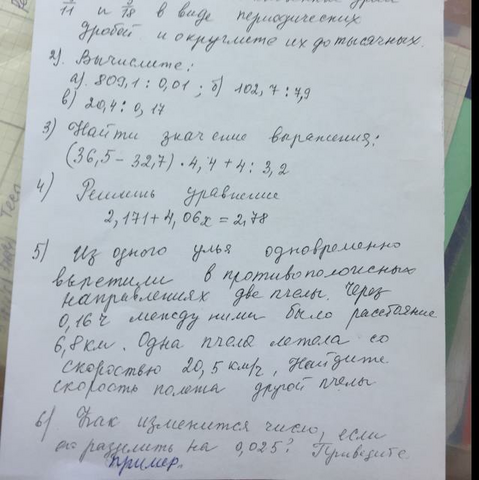 11 и 18 в виде периодических
дробей и округлите их до тысячных.
2). Вычислите:
а). 809,1 : 0,01 ; б) 102,7 : 7,9
в) 20,4 : 0,17
3) Найти значение выражения:
(36,5 - 32,7) • 4,4 + 4 : 3,2
4) Решить уравнение
2,171 + 4,06x = 2,78
5) Из одного улья одновременно
вылетили в противоположных
направлениях две пчелы. Через
0,16 ч между ними было расстояние
6,8 км. Одна пчела летела со
скоростью 20,5 км/ч, Найдите
скорость полета другой пчелы
6) Как изменится число, если
разделить на 0,025? Приведите
пример.